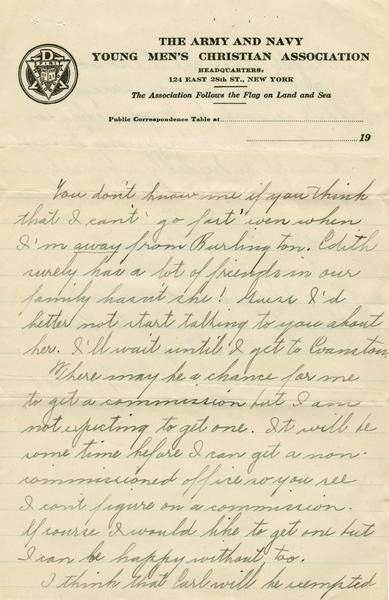 THE ARMY AND NAVY
YOUNG MEN'S CHRISTIAN ASSOCIATION
HEADQUARTERS:
124 EAST 28th ST., NEW YORK
The Association Follows the Flag on Land and Sea
Public Correspondence Table at
19
You don't know me if you think
that I can't go fast even when
I'm away from Burlington. Edith
surely has a lot of friends in our
family hasn't she! Guess I'd
better not start talking to you about
her. I'll wait until I get to Evanston.
There may be a chance for me
to get a commission but I am
not expecting to get one. It will be
some time before I can get a non-
commissioned office so you see
I can't figure on a commission.
Of course I would like to get one but
I can be happy without too.
I think that Carl will be exempted